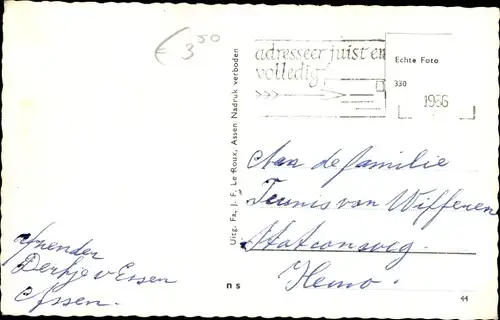 € 3.50
adresseer juist en
volledig
Echte Foto
330
1956
Uitg. Fa. J. F. Le Roux, Assen Nadruk verboden
Aan de familie
Teunis van Wifferen
Stationsweg.
Hemo.
Afzender
Derkje v Essen
Assen.
n s
44